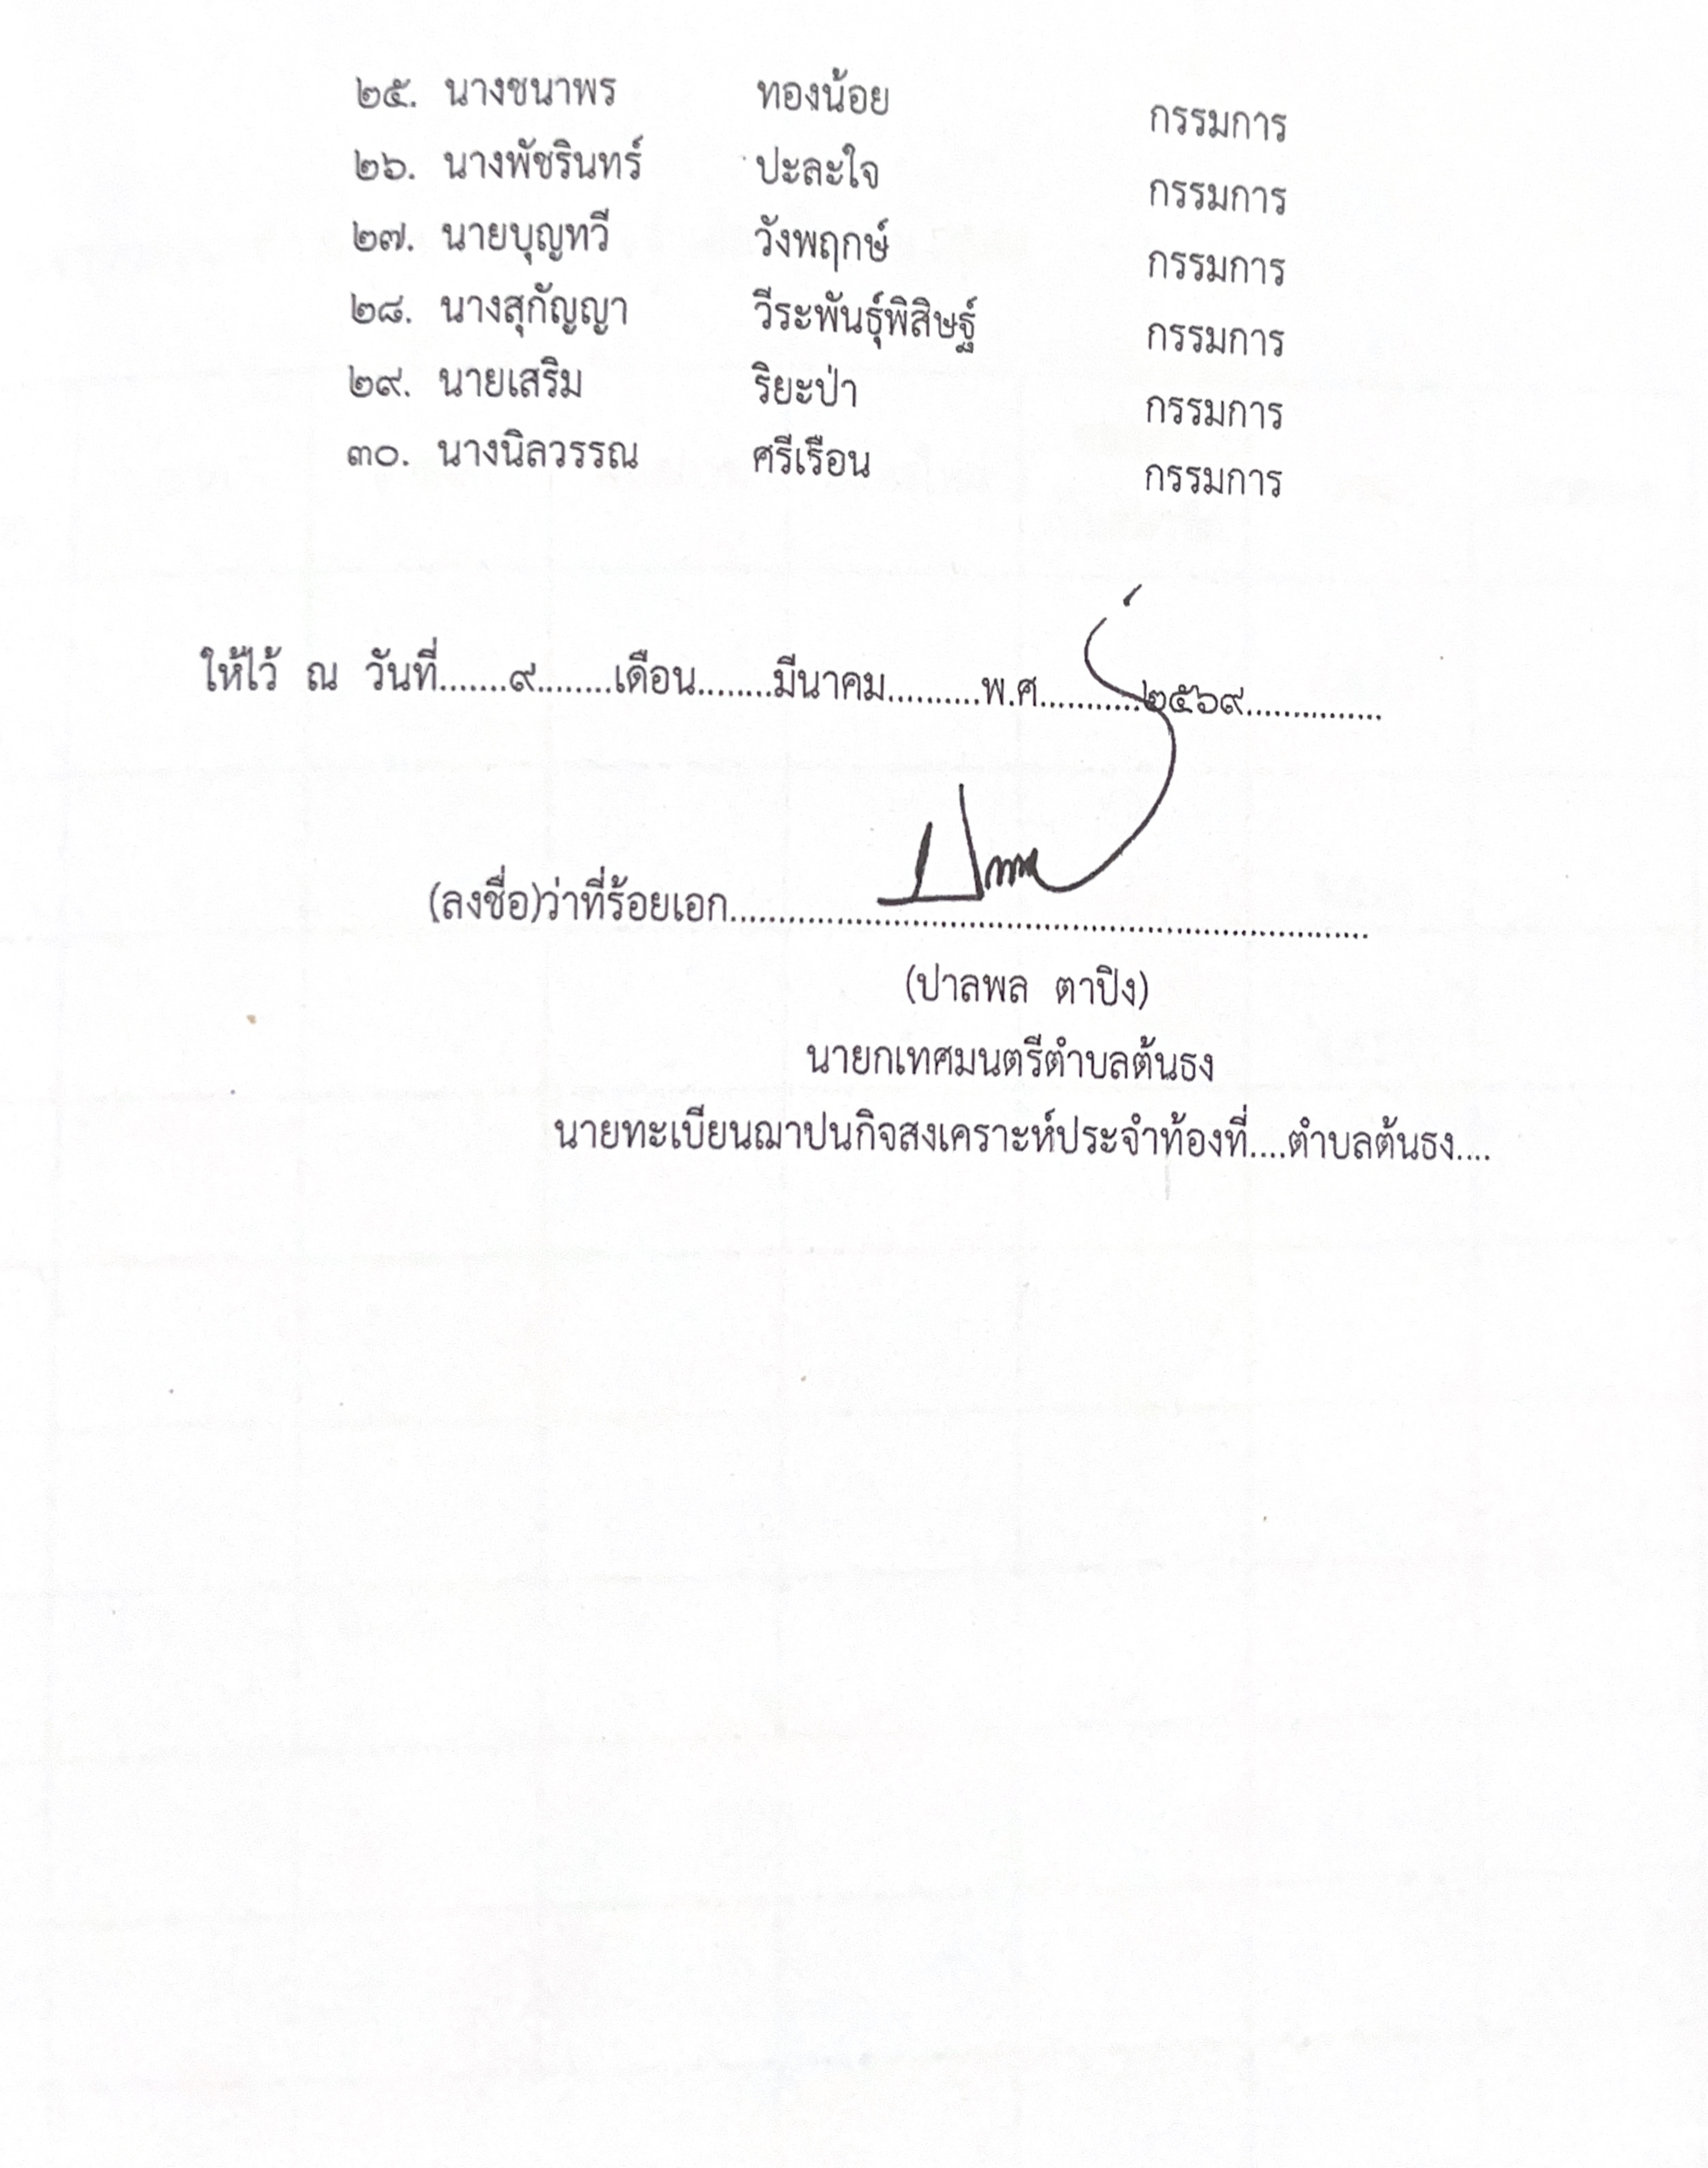 ๒๕. นางชนาพร ทองน้อย กรรมการ
๒๖. นางพัชรินทร์ ปะละใจ กรรมการ
๒๗. นายบุญทวี วังพฤกษ์ กรรมการ
๒๘. นางสุกัญญา วีระพันธุ์พิสิษฐ์ กรรมการ
๒๙. นายเสริม ริยะป่า กรรมการ
๓๐. นางนิลวรรณ ศรีเรือน กรรมการ
ให้ไว้ ณ วันที่.......๙........เดือน........มีนาคม..........พ.ศ...........๒๕๖๙...............
(ลงชื่อ)ว่าที่ร้อยเอก......................................................................
(ปาลพล ตาปิง)
นายกเทศมนตรีตำบลต้นธง
นายทะเบียนฌาปนกิจสงเคราะห์ประจำท้องที่....ตำบลต้นธง....